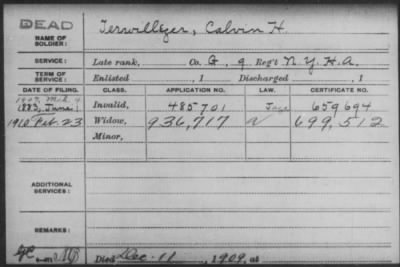 DEAD
NAME OF SOLDIER: Terwilliger, Calvin H.
SERVICE: Late rank, Co. G, 9 Reg't N.Y.H.A.
TERM OF SERVICE: Enlisted , 1 Discharged , 1
DATE OF FILING. CLASS. APPLICATION NO. LAW. CERTIFICATE NO.
1883, June 1 Invalid, 485,701 659694
1910 Feb. 23 Widow, 936,717 699,512
Minor,
ADDITIONAL SERVICES:
REMARKS:
Died Dec. 11, 1909, at